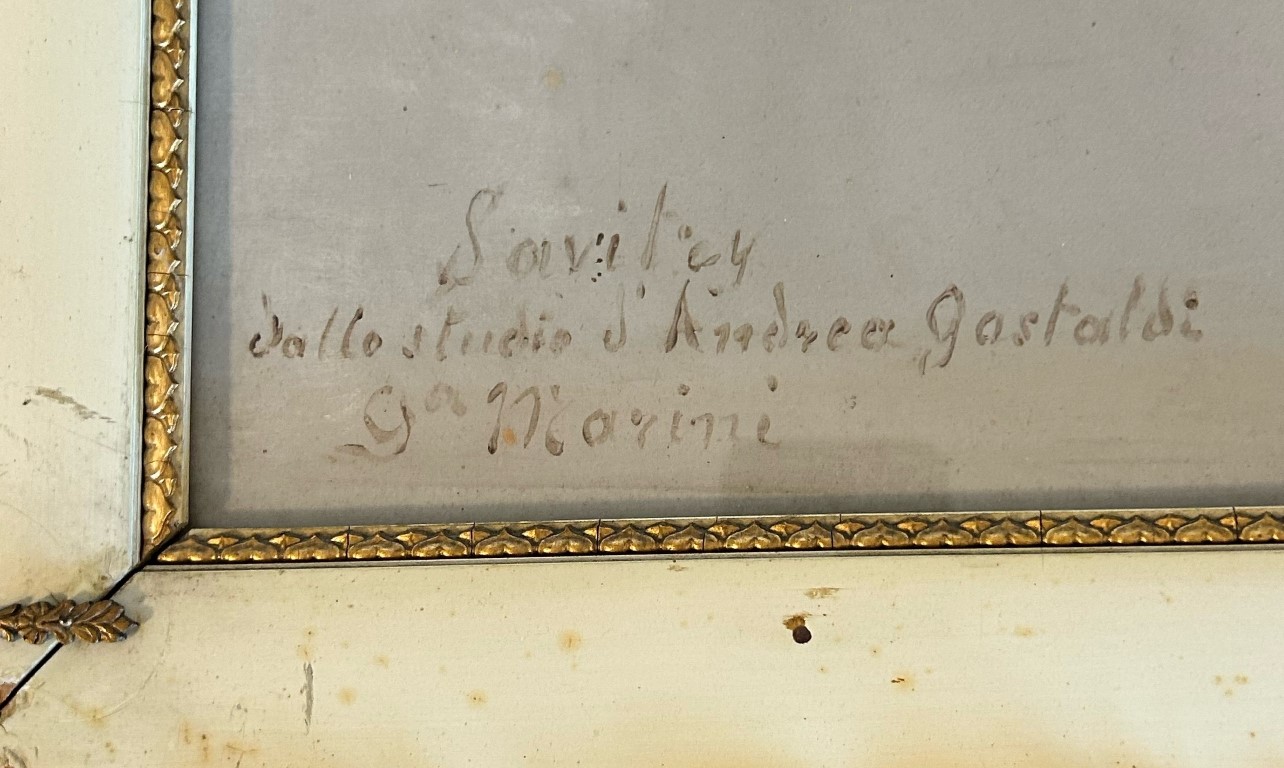 Savitry
dallo studio d'Andrea Gastaldi
Ga Marini